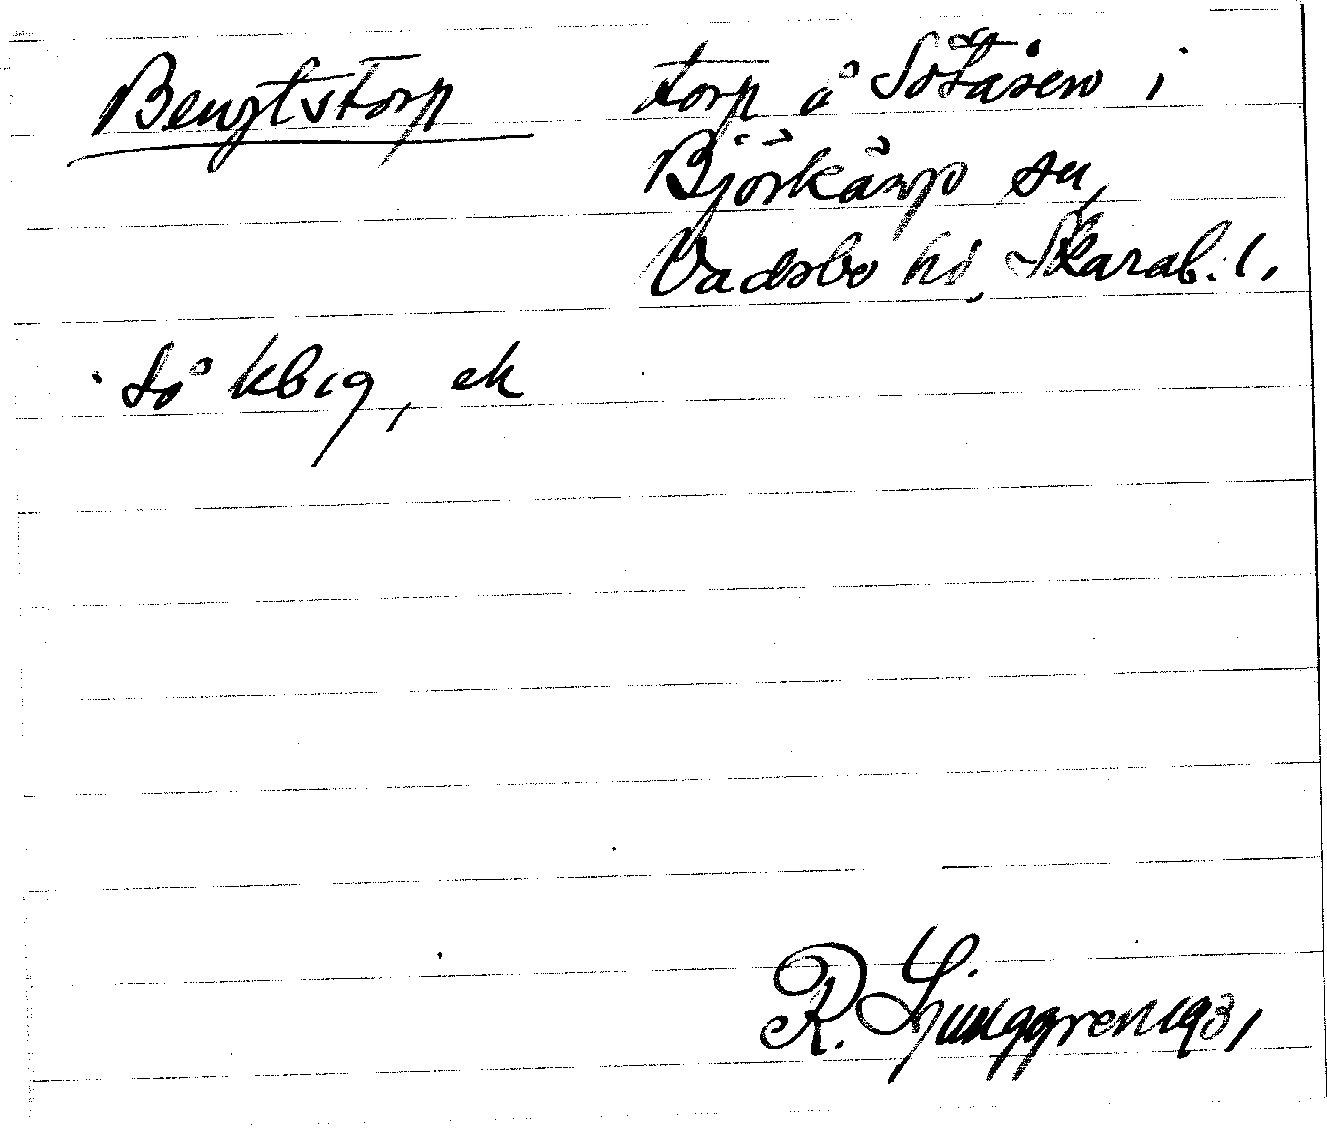 Bengtstorp torp å Sötåsen i
Björkäng sn,
Vadsbo hd, Skarab. l.
så kbr 19, ek
R. Ljunggren 1931